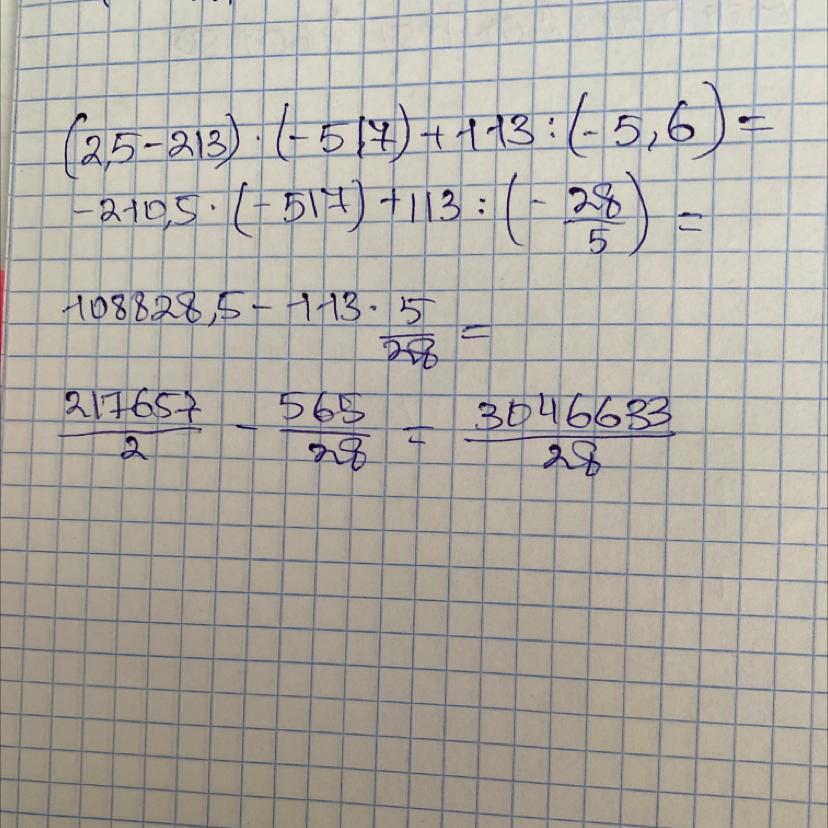 (2,5-213)·(-517)+113:(-5,6)=
-210,5·(-517)+113:(-28/5)=
108828,5-113·5/28=
217657/2-565/28=3046633/28